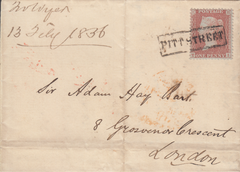 13 July 1836
PITT STREET
Sir Adam Hay Bart.
8 Grosvenor Crescent
London